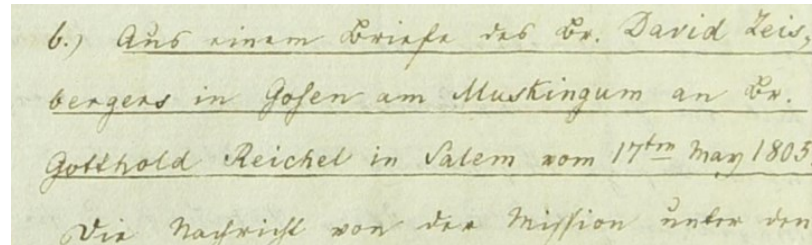 b.) Aus einem Briefe des Br. David Zeis-
bergers in Gosen am Muskingum an Br.
Gotthold Reichel in Salem vom 17ten May 1803
Die Nachricht von der Mission unter den